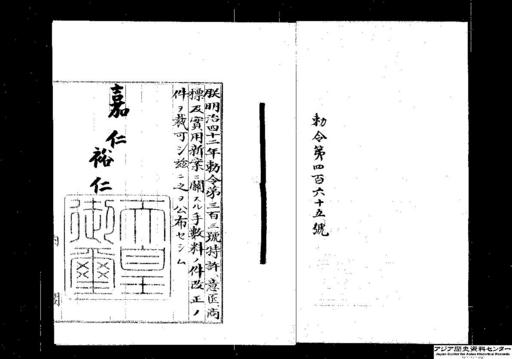 勅令第四百六十五號
朕明治四十二年勅令第三百三號特許意匠商
標及實用新案ニ關スル手數料ノ件改正ノ
件ヲ裁可シ茲ニ之ヲ公布セシム
嘉仁
裕仁
天皇御璽
アジア歴史資料センター
Japan Center for Asian Historical Records